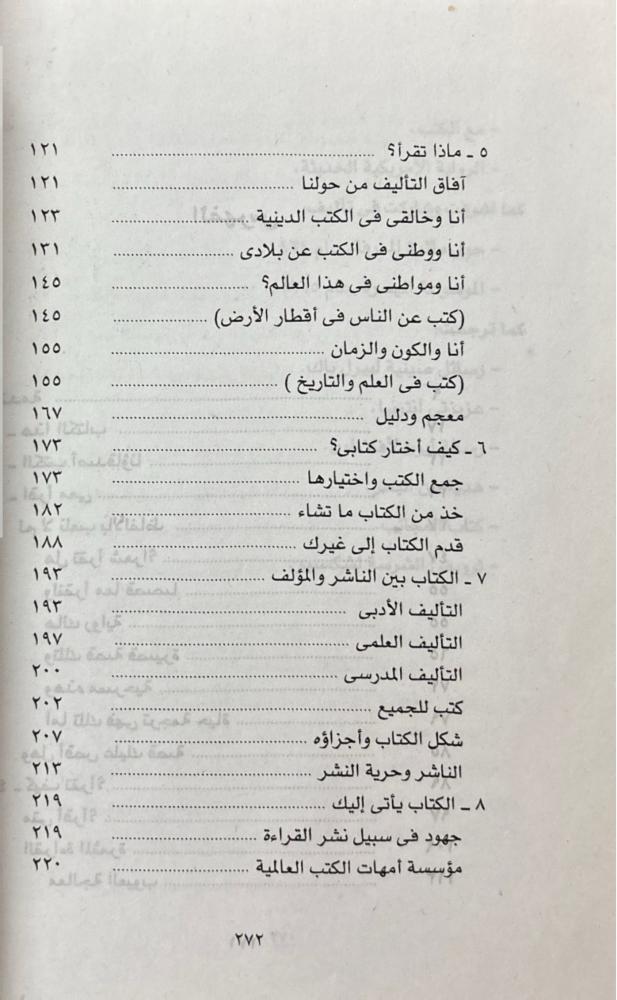 ٥ ـ ماذا تقرأ؟ ........................ ١٢١
آفاق التأليف من حولنا ........................ ١٢١
أنا وخالقى فى الكتب الدينية ........................ ١٢٣
أنا ووطنى فى الكتب عن بلادى ........................ ١٣١
أنا ومواطنى فى هذا العالم؟ ........................ ١٤٥
(كتب عن الناس فى أقطار الأرض) ........................ ١٤٥
أنا والكون والزمان ........................ ١٥٥
(كتب فى العلم والتاريخ ) ........................ ١٥٥
معجم ودليل ........................ ١٦٧
٦ ـ كيف أختار كتابى؟ ........................ ١٧٣
جمع الكتب واختيارها ........................ ١٧٣
خذ من الكتاب ما تشاء ........................ ١٨٢
قدم الكتاب إلى غيرك ........................ ١٨٨
٧ ـ الكتاب بين الناشر والمؤلف ........................ ١٩٣
التأليف الأدبى ........................ ١٩٣
التأليف العلمى ........................ ١٩٧
التأليف المدرسى ........................ ٢٠٠
كتب للجميع ........................ ٢٠٢
شكل الكتاب وأجزاؤه ........................ ٢٠٧
الناشر وحرية النشر ........................ ٢١٣
٨ ـ الكتاب يأتى إليك ........................ ٢١٩
جهود فى سبيل نشر القراءة ........................ ٢١٩
مؤسسة أمهات الكتب العالمية ........................ ٢٢٠
٢٧٢